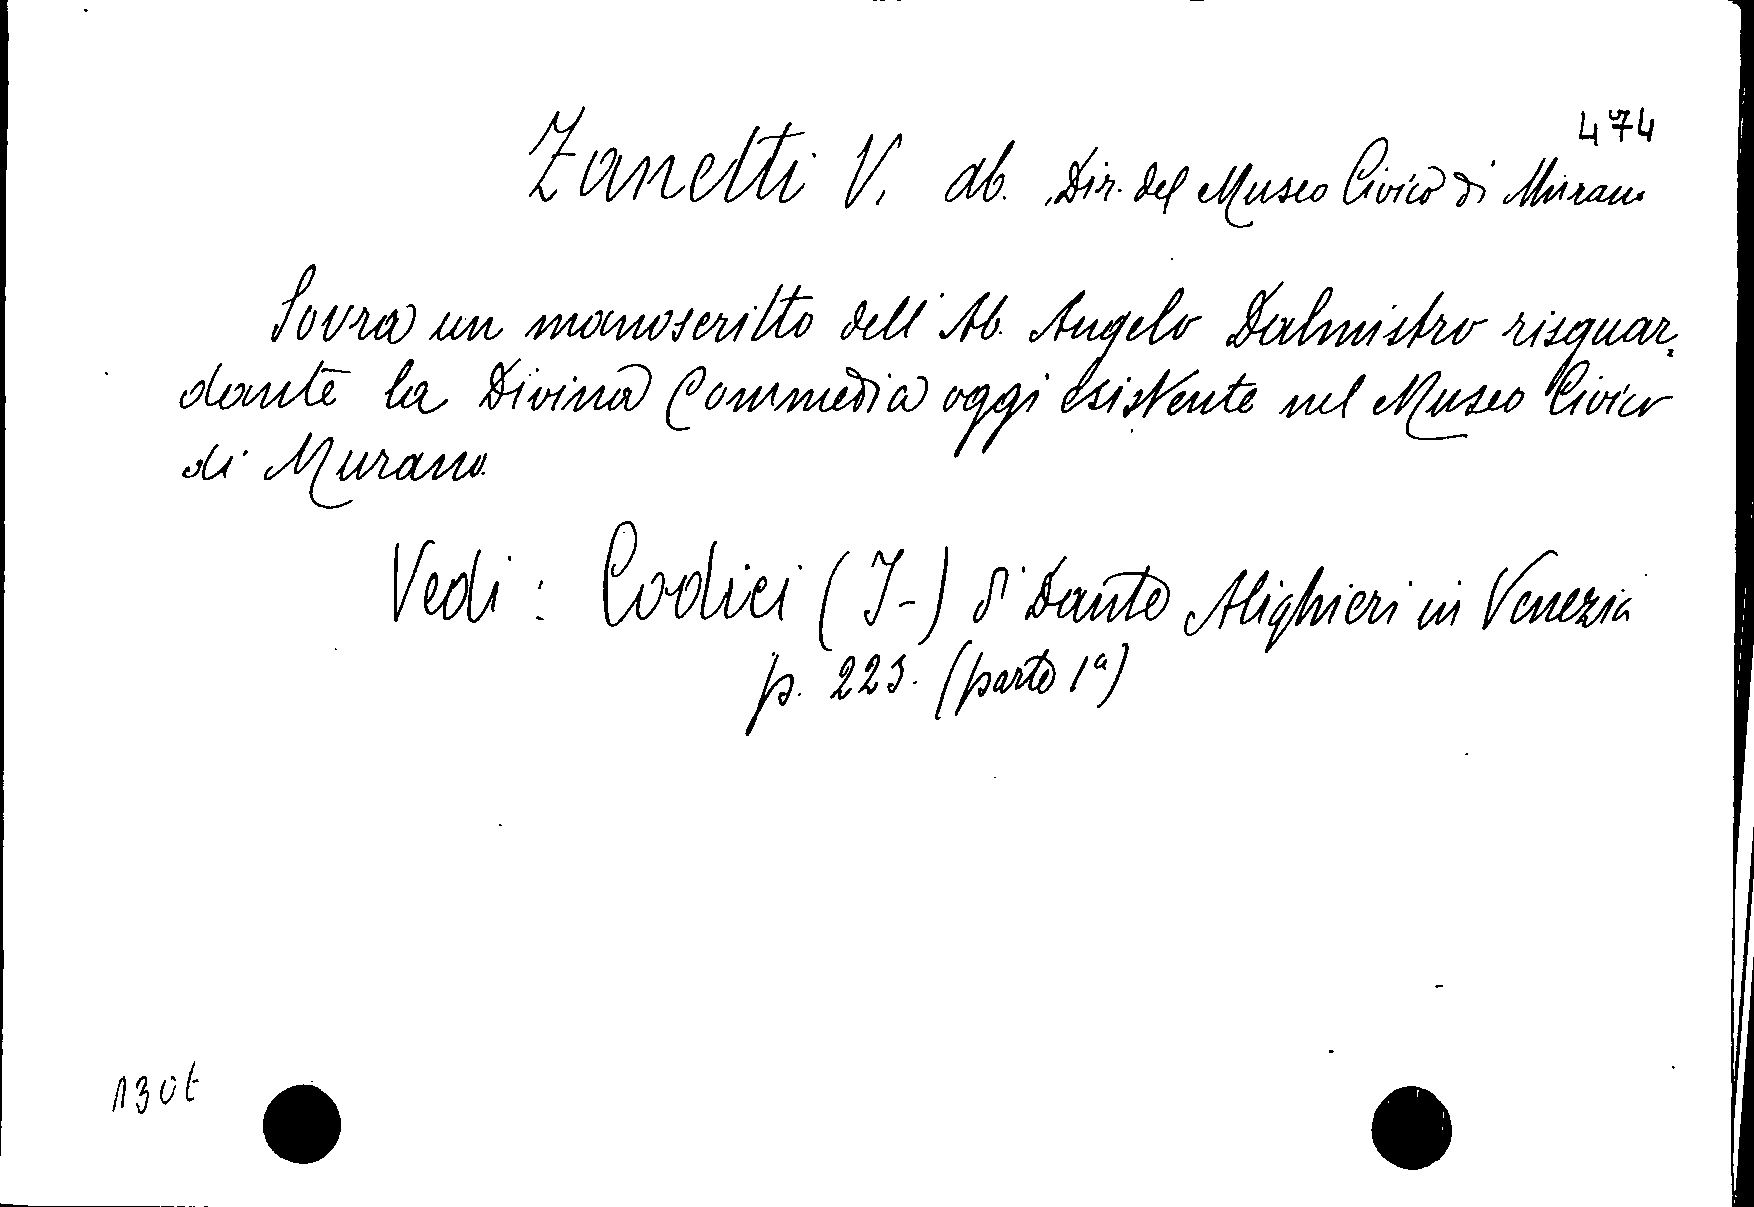 474
Zanetti V. ab. Dir. del Museo Civico di Murano
Sovra un manoscritto dell' Ab. Angelo Dalmistro risguar-
dante la Divina Commedia oggi esistente nel Museo Civico
di Murano.
Vedi: Codici (I-) di Dante Alighieri in Venezia
p. 223. (parte 1ª)